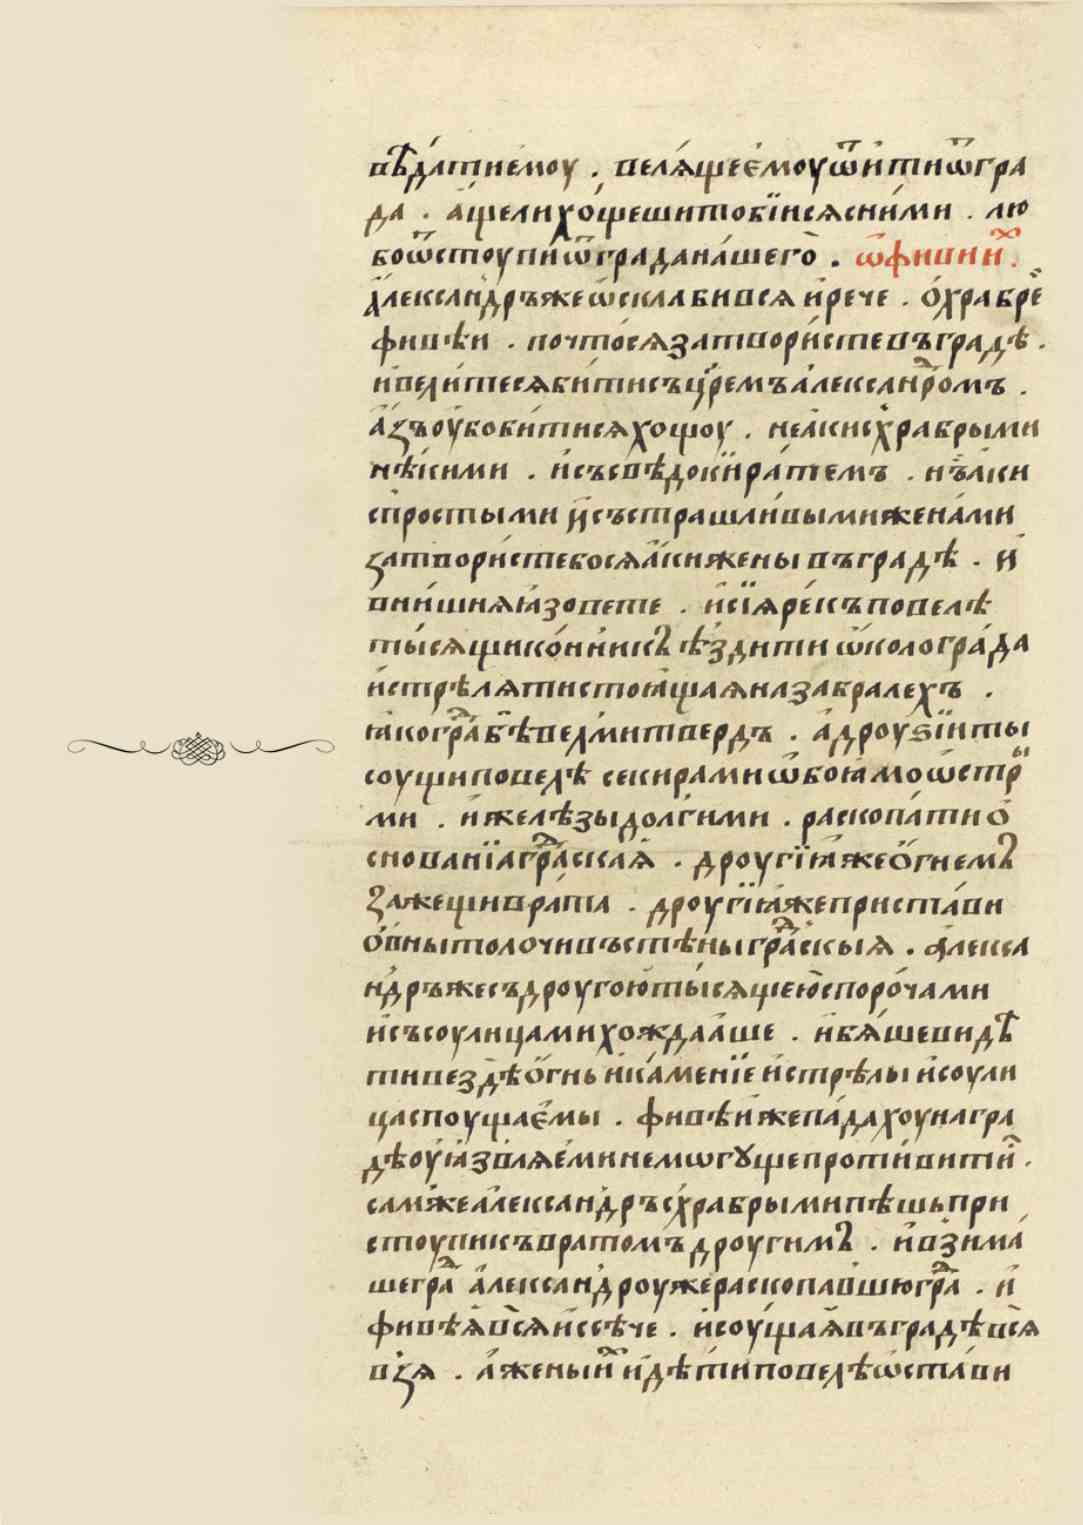 вѣдати емоу . велѧще емоу ѿити ѿ гра
да . аще ли хощеши то бїисѧ с ними . лю
бо ѿстоупи ѿ града нашего . ѡ фивии .
александръ же ѡсклабивсѧ и рече . о храбре
фивѣи . почто сѧ затвористе въ градѣ .
и велите сѧ бити съ цремъ александромъ .
азъ оубо битисѧ хощоу . не аки с храбрыми
нѣкими . и съ свѣдокїи ратемъ . нъ аки
с простыми и съ страшливыми женами
затвористе бо сѧ аки жены въ градѣ . и
внишнѧѧ зовете . и сїѧ рекъ повелѣ
тысѧщи конникъ ѣздити ѡколо града
и стрѣлѧти стоꙗщаѧ на забралехъ .
ꙗко гра бѣ велми твердъ . а дроуѕїи ты
соущи повелѣ секирами ѡбоꙗмо ѡстрї
ми . и желѣзы долгими . раскопати о
снованїа граскаѧ . дроугїꙗ же огнемъ
зажещи врата . дроугїꙗ же пристави
овны толочи въ стѣны граскыѧ . алекса
ндръ же съ дроугою тысѧщею с порочами
и съ соулицами хождааше . и бѧше видѣ
ти вездѣ огнь и каменїе и стрѣлы и соули
ца спощаемы . фивѣи же падахоу на гра
дѣ оуꙗзвлѧеми не могꙋще противити .
сам же александръ с храбрыми пѣшь при
стоупи къ вратомъ дроугимъ . и взима
ше гра александроу же раскопавшю гра . и
фивѣѧ всѧ иссѣче . и соущаѧ въ градѣ всѧ
взѧ . а жены и дѣти повелѣ ѡстави